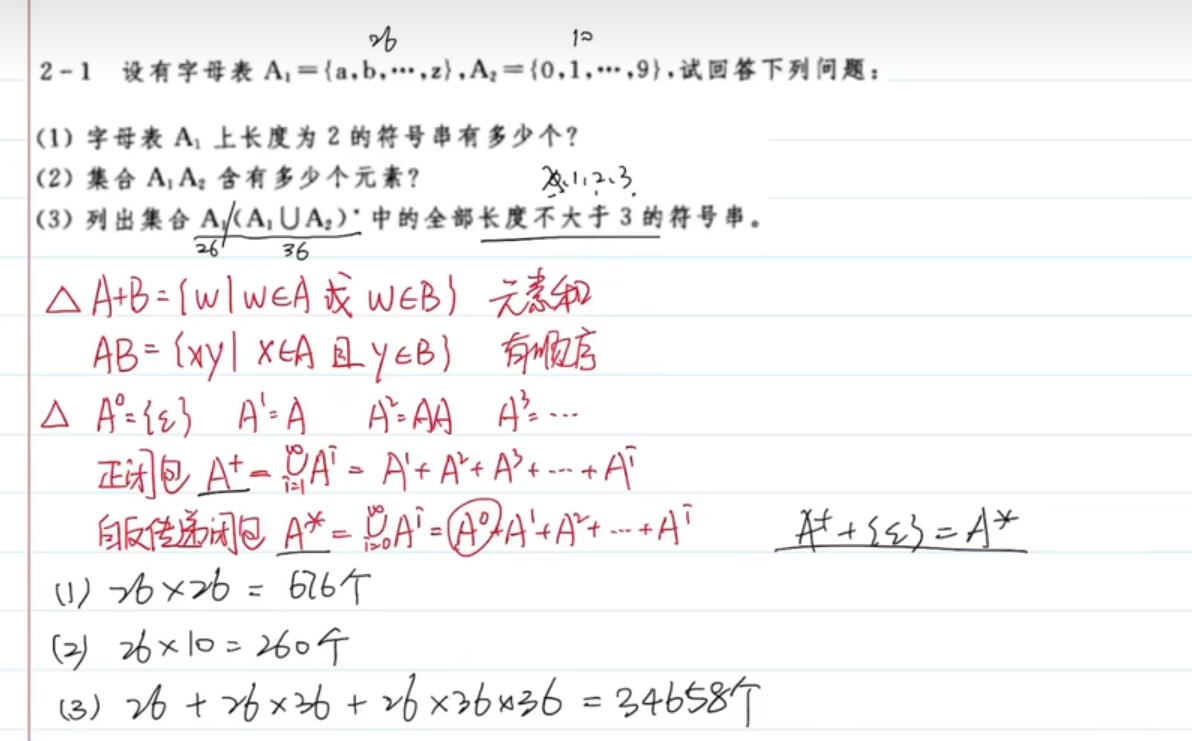 26 10
2-1 设有字母表 A₁={a,b,…,z},A₂={0,1,…,9},试回答下列问题：
(1) 字母表 A₁ 上长度为 2 的符号串有多少个？
(2) 集合 A₁A₂ 含有多少个元素？
1、2、3
(3) 列出集合 A₁(A₁∪A₂)* 中的全部长度不大于 3 的符号串。
26 36
△ A+B={w|w∈A 或 w∈B} 元素和
AB={xy|x∈A 且 y∈B} 有顺序
△ A⁰={ε} A¹=A A²=AA A³=…
正闭包 A⁺=⋃_{i=1}^{∞}Aⁱ=A¹+A²+A³+…+Aⁱ
自反传递闭包 A*=⋃_{i=0}^{∞}Aⁱ=A⁰+A¹+A²+…+Aⁱ A⁺+{ε}=A*
(1) 26×26=676个
(2) 26×10=260个
(3) 26+26×36+26×36×36=34658个